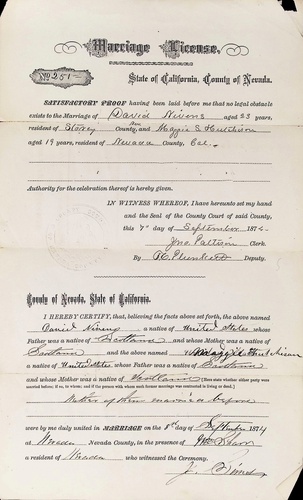 Marriage License,
No 251
State of California, County of Nevada.
SATISFACTORY PROOF having been laid before me that no legal obstacle
exists to the Marriage of David Nivens aged 23 years,
resident of Storey Nev County, and Maggie S Hutchison
aged 19 years, resident of Nevada County, Cal.
Authority for the celebration thereof is hereby given.
IN WITNESS WHEREOF, I have hereunto set my hand
and the Seal of the County Court of said County,
this 7th day of September 1874
Jno Pattison Clerk.
By Deputy.
County of Nevada, State of California.
I HEREBY CERTIFY, that, believing the facts above set forth, the above named
Daniel Nivens a native of United States whose
Father was a native of Scotland and whose Mother was a native of
Scotland and the above named Maggie Hutchison
a native of United States whose Father was a native of Scotland
and whose Mother was a native of Scotland
Neither of them married before
were by me duly united in MARRIAGE on the 8th day of September 1874
at Nevada Nevada County, in the presence of
a resident of Nevada who witnessed the Ceremony.